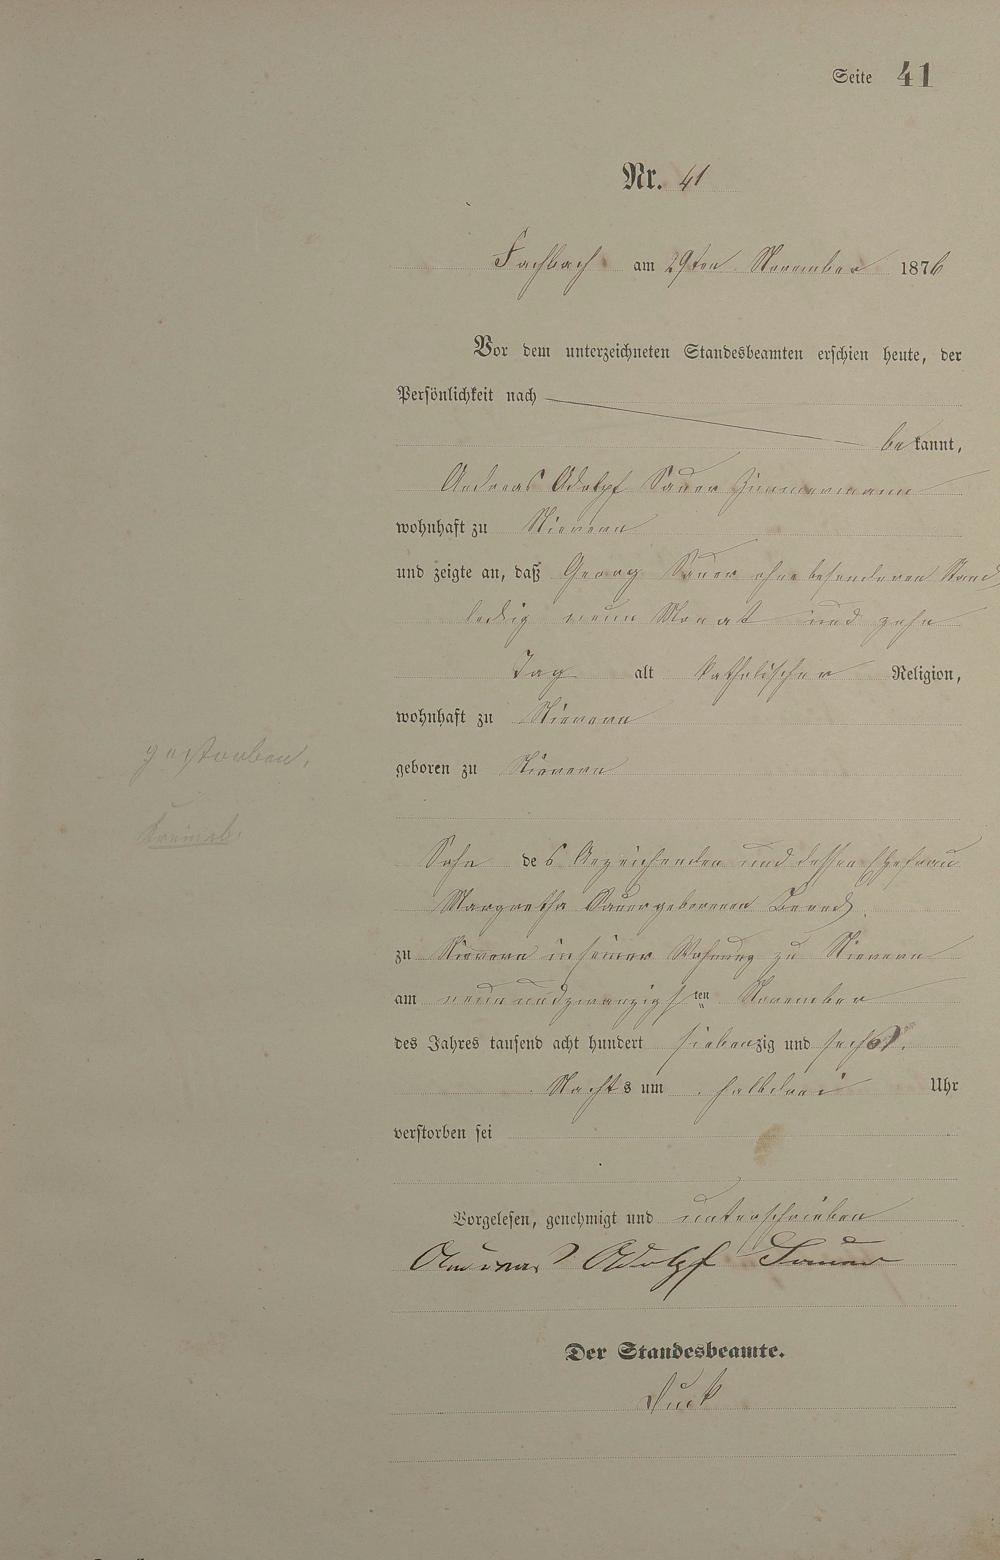 Seite 41
Nr. 41
Fachbach am 29ten November 1876
Vor dem unterzeichneten Standesbeamten erschien heute, der
Persönlichkeit nach
bekannt,
Andreas Adolph Sauer Zimmermann
wohnhaft zu Nievern
und zeigte an, daß Georg Sauer ohne besonderen Stand
ledig neun Monat und zehn
Tag alt katholischer Religion,
wohnhaft zu Nievern
gestorben,
geboren zu Nievern
Sohn des Anzeichenden und dessen Ehefrau
Margretha Sauer geborenen
zu Nievern in seiner Wohnung zu Nievern
am neunundzwanzigsten November
des Jahres tausend acht hundert siebenzig und sechs.
Nachts um halbdrei Uhr
verstorben sei
Vorgelesen, genehmigt und unterschrieben
Andreas Adolpf Sauer
Der Standesbeamte.